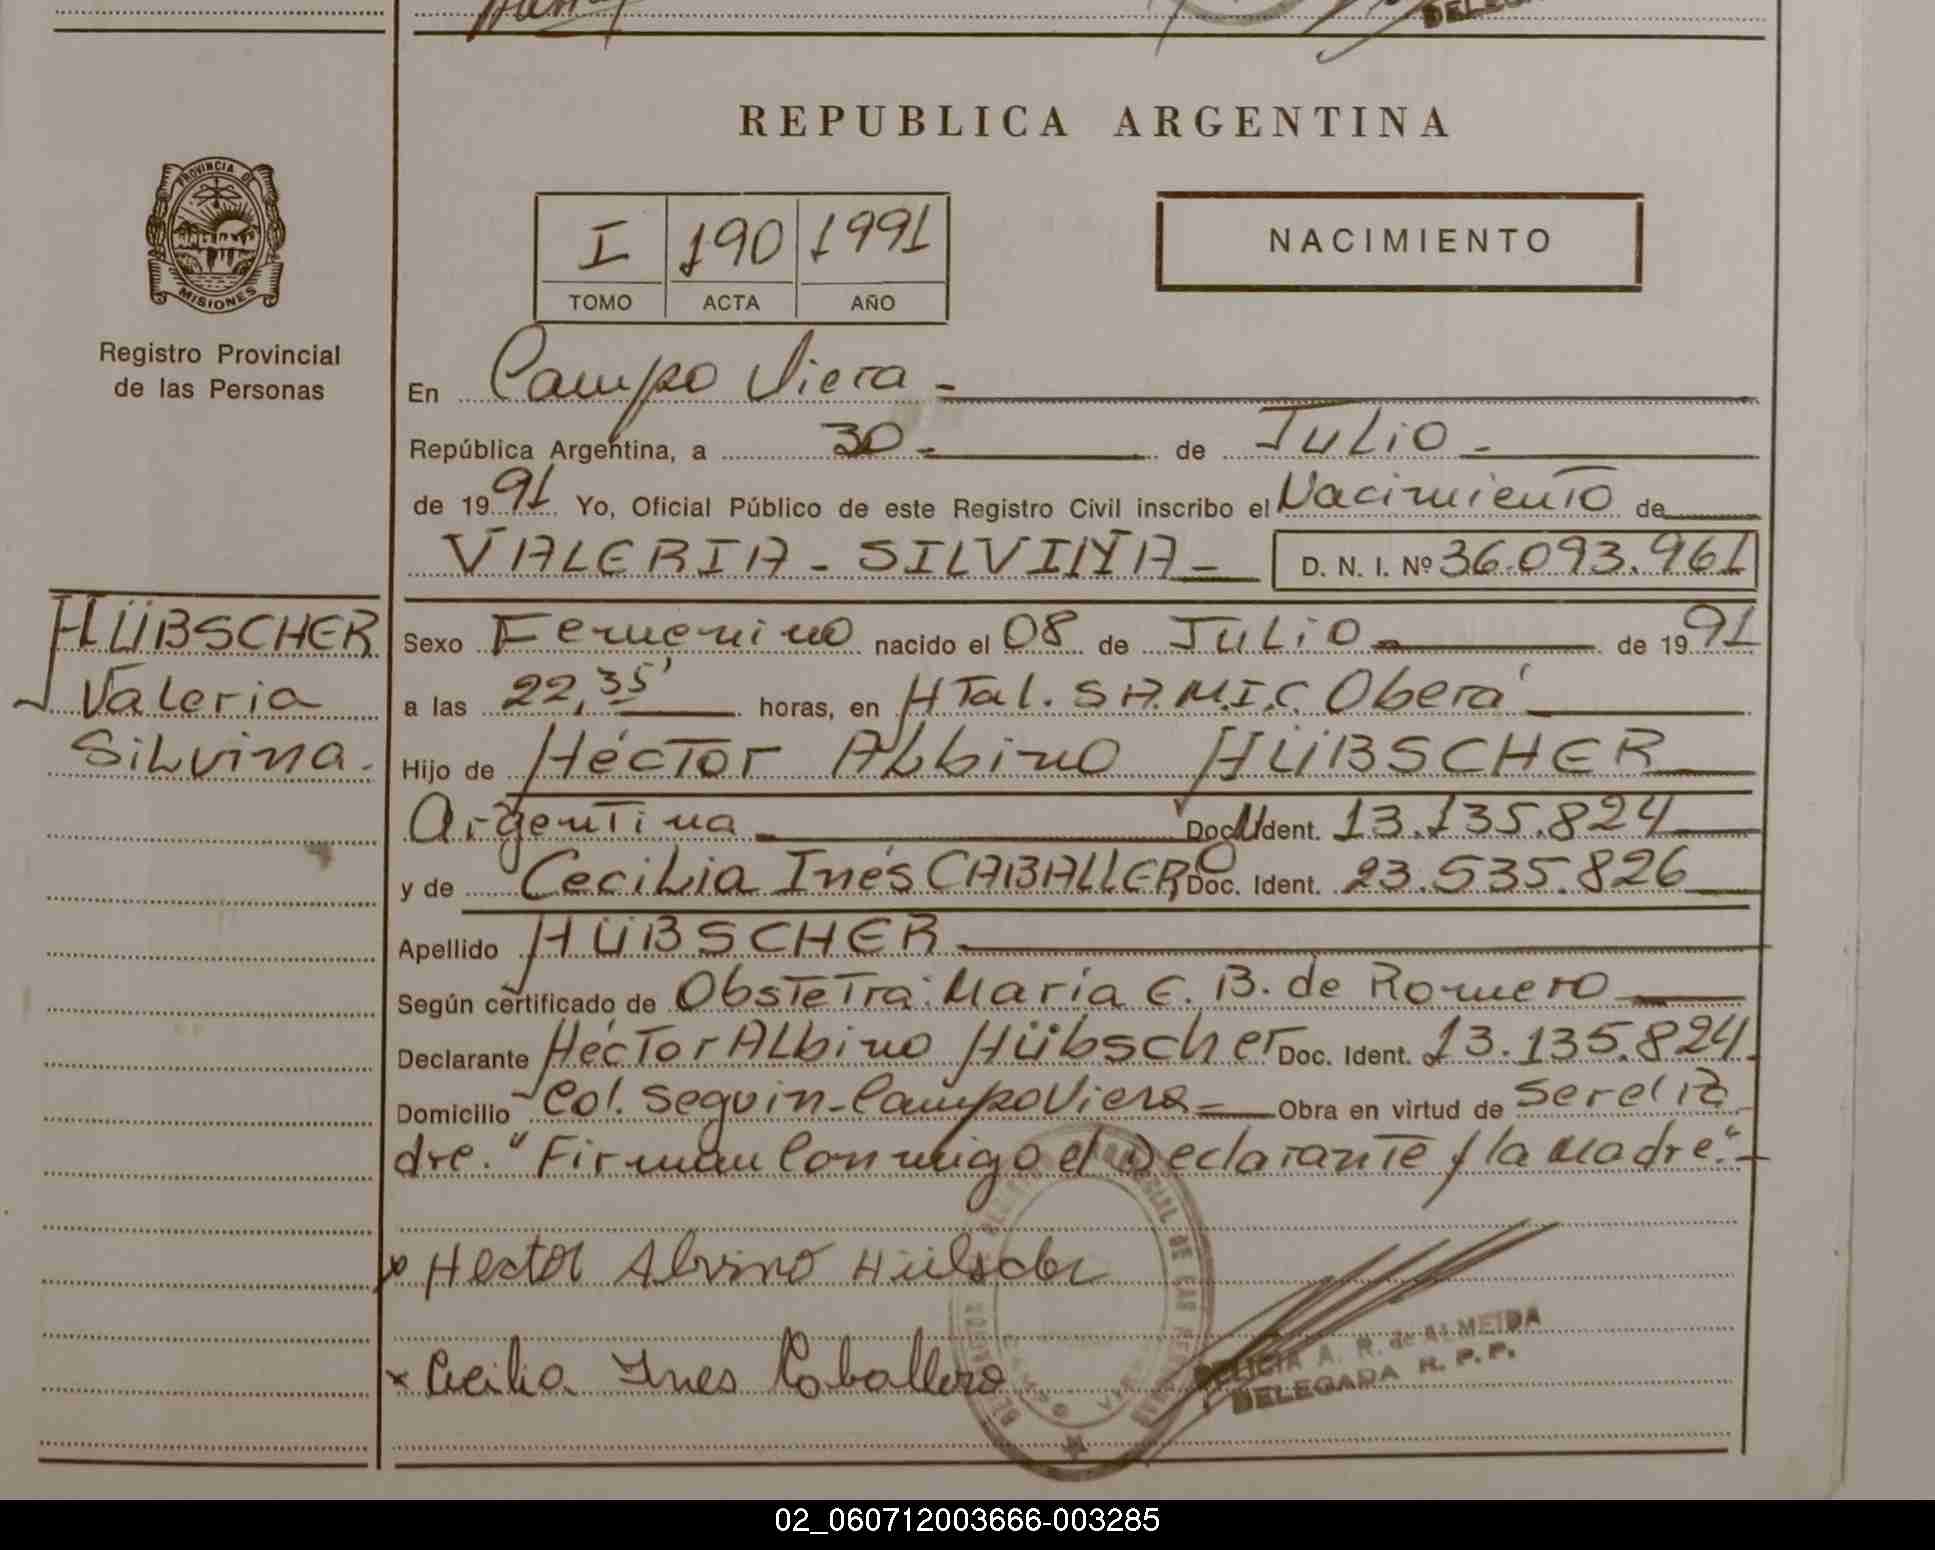 REPUBLICA ARGENTINA
PROVINCIA DE
MISIONES
Registro Provincial
de las Personas
I 190 1991
TOMO ACTA AÑO
NACIMIENTO
En Campo Viera -
República Argentina, a 30 - de Julio -
de 1991 Yo, Oficial Público de este Registro Civil inscribo el Nacimiento de
VALERIA - SILVINA - D. N. I. Nº 36.093.961
HÜBSCHER
Valeria
Silvina.
Sexo Femenino nacido el 08 de Julio - de 1991
a las 22,35' horas, en HTal. S.A.M.I.C. Oberá
Hijo de Héctor Albino HÜBSCHER
Argentina Doc. Ident. 13.135.824
y de Cecilia Inés CABALLERO Doc. Ident. 23.535.826
Apellido HÜBSCHER
Según certificado de Obstetra: María E. B. de Romero
Declarante Héctor Albino Hübscher Doc. Ident. 13.135.824.
Domicilio Col. Seguin - Campo Viera - Obra en virtud de Ser el Pa
dre. "Firman Conmigo el Declarante y la Madre."-
x Hector Alvino Hübscher
x Cecilia Ines Caballero
DELICIA A. R. de ALMEIDA
DELEGADA R. P. P.
02_060712003666-003285